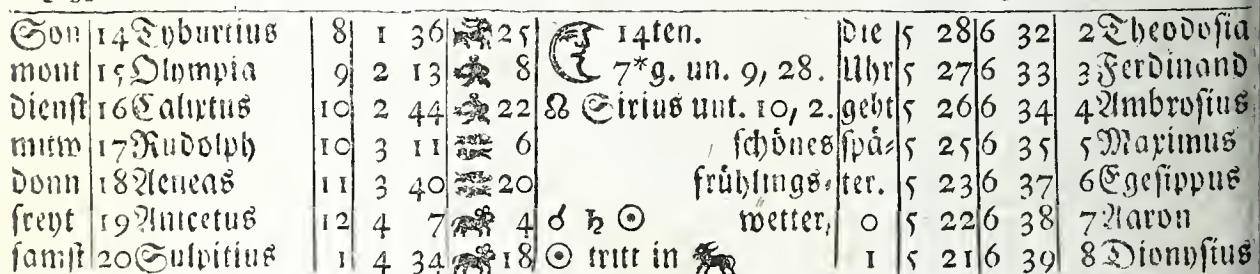 Son 14 Tyburtius 8 1 36 25 14ten. Die 5 28 6 32 2 Theodosia
mont 15 Olympia 9 2 13 8 7*g. un. 9, 28. Uhr 5 27 6 33 3 Ferdinand
dienst 16 Calixtus 10 2 44 22 ☊ Sirius unt. 10, 2. geht 5 26 6 34 4 Ambrosius
mitw 17 Rudolph 10 3 11 6 schönes spä⸗ 5 25 6 35 5 Maximus
donn 18 Aeneas 11 3 40 20 frühlings⸗ ter. 5 23 6 37 6 Egesippus
freyt 19 Anicetus 12 4 7 4 ☌ ♄ ☉ wetter, 0 5 22 6 38 7 Aaron
samst 20 Sulpitius 1 4 34 18 ☉ tritt in 1 5 21 6 39 8 Dionysius